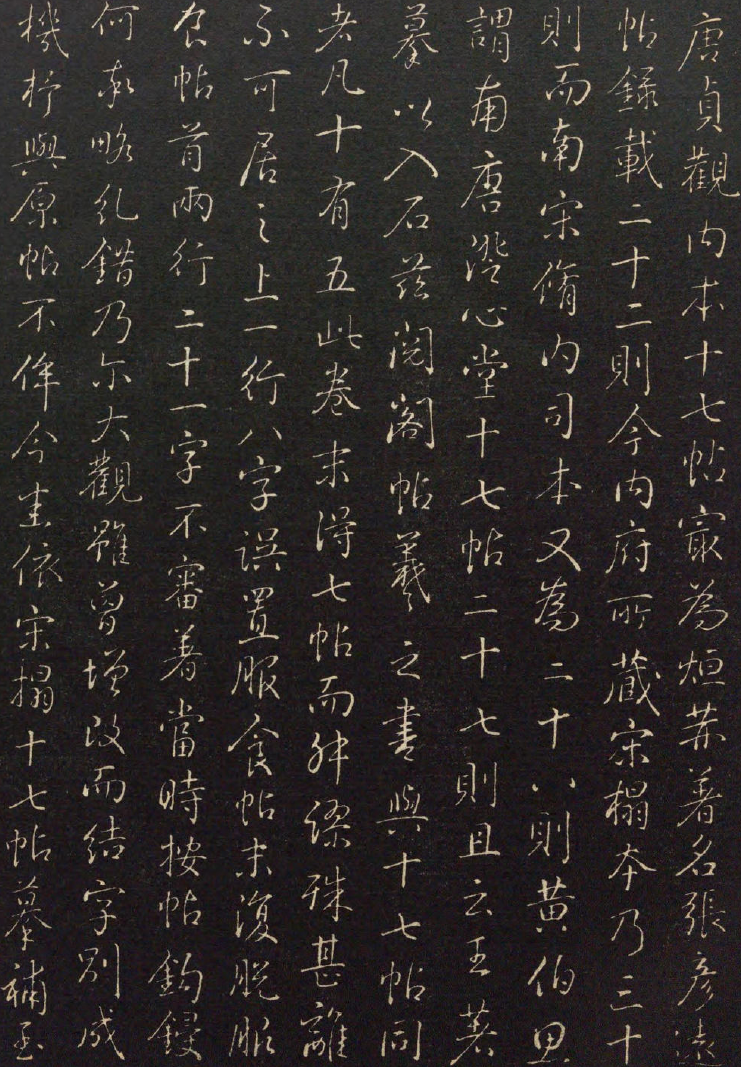 唐貞觀内本十七帖寂為烜赫著名張彦遠
帖録載二十二則今内府所藏宋榻本乃三十
則而南宋脩内司本又為二十八則黄伯思
謂南唐澄心堂十七帖二十七則且云王著
摹以入石茲閲閣帖羲之書與十七帖同
者凡十有五此卷末得七帖而舛繆殊甚離
不可居之上一行八字誤置服食帖末復脱服
食帖首兩行二十一字不審著當時按帖鈎鋟
何亦略乱錯乃尓大觀雖曾增改而結字别成
機杼與原帖不侔今悉依宋搨十七帖摹補至